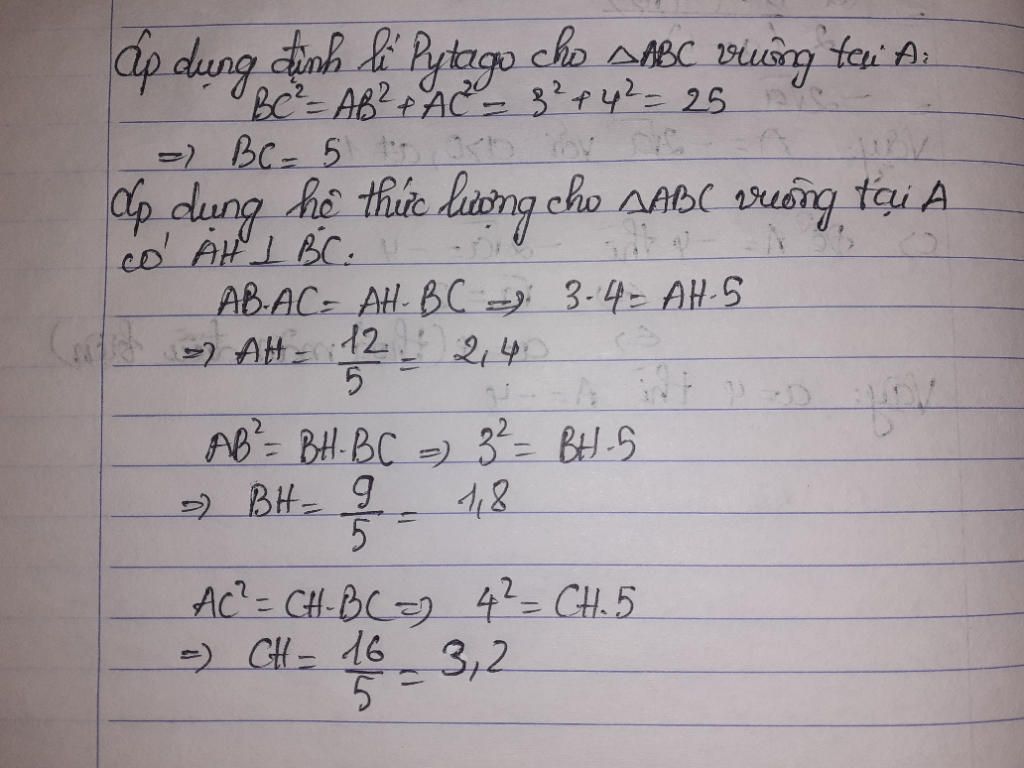 Áp dụng định lí Pytago cho △ABC vuông tại A:
BC² = AB² + AC² = 3² + 4² = 25
=> BC = 5
Áp dụng hệ thức lượng cho △ABC vuông tại A
có AH ⊥ BC.
AB.AC = AH.BC => 3.4 = AH.5
=> AH = 12/5 = 2,4
AB² = BH.BC => 3² = BH.5
=> BH = 9/5 = 1,8
AC² = CH.BC => 4² = CH.5
=> CH = 16/5 = 3,2